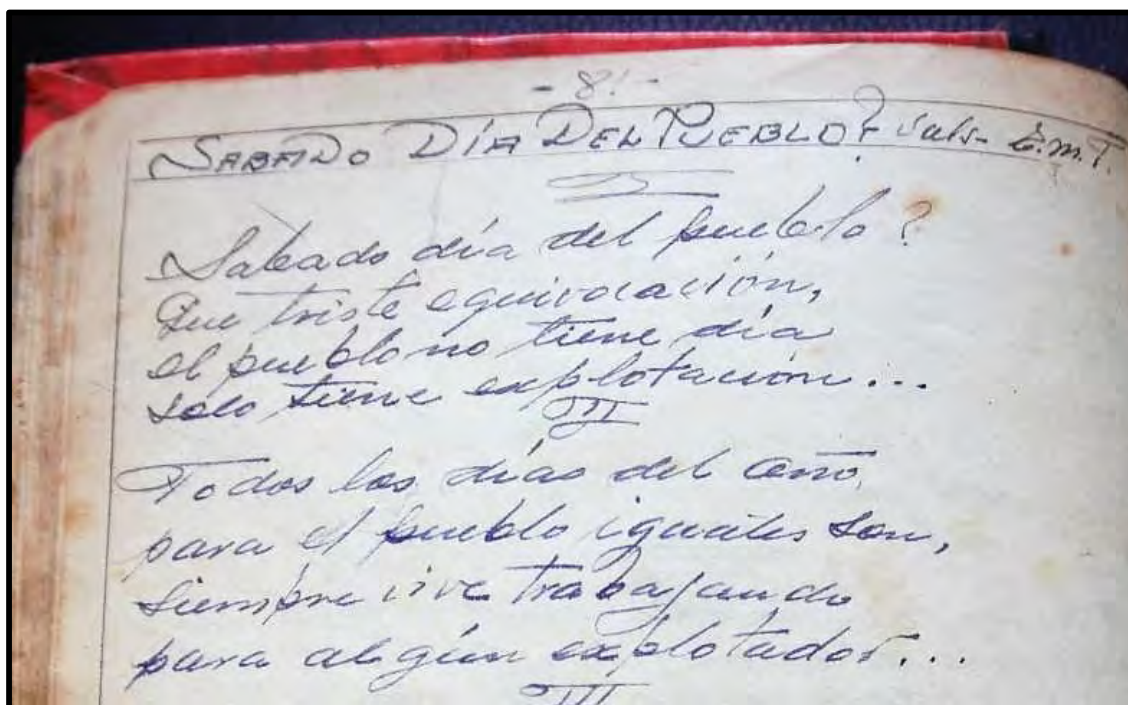 - 8! -
SABADO DÍA DEL PUEBLO? Vals- E.M.T.
Sabado día del pueblo?
Que triste equivocación,
el pueblo no tiene día
solo tiene explotación...
III
Todos los días del año,
para el pueblo iguales son,
siempre vive trabajando
para algún explotador...
III